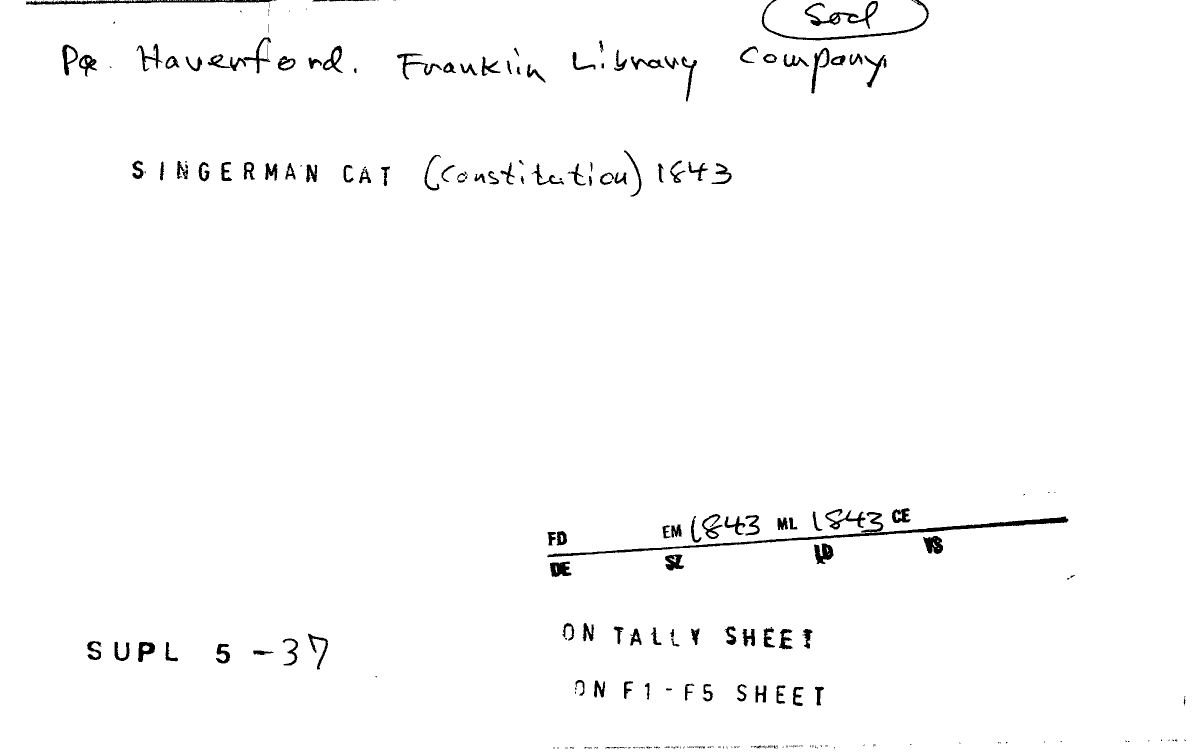 Socl
Pa. Haverford. Franklin Library Company
SINGERMAN CAT (Constitution) 1843
FD EM 1843 ML 1843 CE
DE SZ LD VS
ON TALLY SHEET
SUPL 5-37
ON F1-F5 SHEET